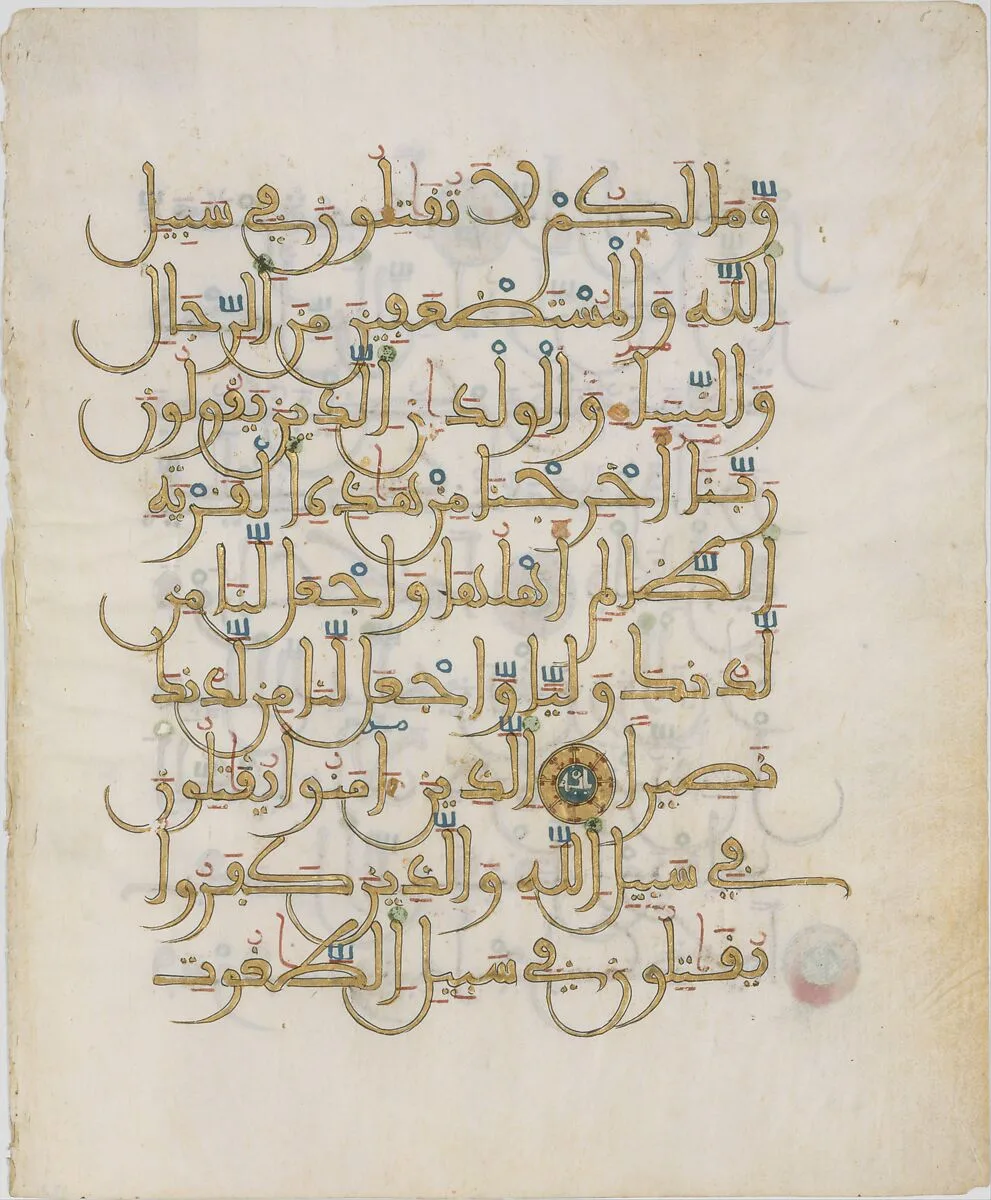 وَمَا لَكُمْ لَا تُقَٰتِلُونَ فِي سَبِيلِ
اللَّهِ وَالْمُسْتَضْعَفِينَ مِنَ الرِّجَالِ
وَالنِّسَاءِ وَالْوِلْدَٰنِ الَّذِينَ يَقُولُونَ
رَبَّنَا أَخْرِجْنَا مِنْ هَٰذِهِ الْقَرْيَةِ
الظَّالِمِ أَهْلُهَا وَاجْعَل لَّنَا مِن
لَّدُنكَ وَلِيًّا وَّاجْعَل لَّنَا مِن لَّدُنكَ
نَصِيرًا الَّذِينَ ءَامَنُوا يُقَٰتِلُونَ
فِي سَبِيلِ اللَّهِ وَالَّذِينَ كَفَرُوا
يُقَٰتِلُونَ فِي سَبِيلِ الطَّٰغُوتِ